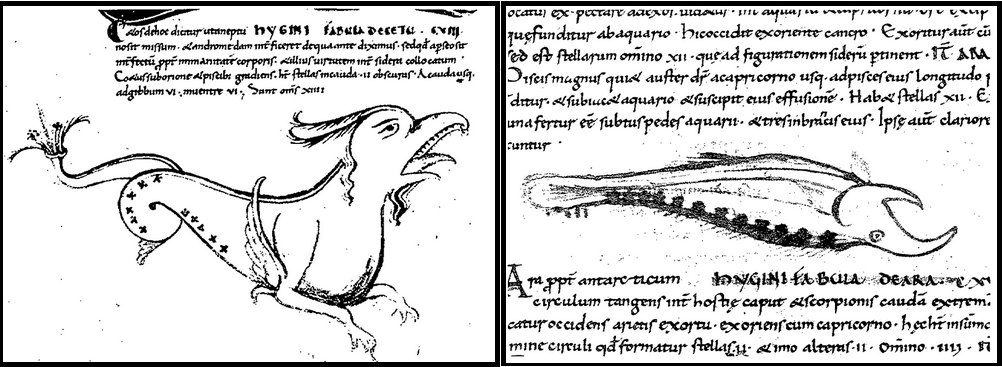 Cetos dehoc dicitur utaneptu HYGINI FABULA DECETU · CVIII
nosit missum · & andromedam int̄ficeret dequa ante diximus · sedqđ a pseosit
int̄fectū ꝓpt̄ immanitatē corporis · & illius uirtutem int̄ sidera collocatum
gradiens · ht̄ stellas in cauda · II obscuras · A cauda usq·
ad gibbum VI · in uentre VI · Sunt om̄s XIIII
quę funditur ab aquario · hic occidit exoriente cancro · Exoritur aut̄
sed est stellarum omīno XII · que ad figurationem siderū ptinent · ARA
Piscis magnus qui & auster dr̄ a capricorno usq· ad pisces eius longitudo
ditur · & subiac& aquario & suscipit eius effusionē · Hab& stellas XII · E
una fertur eē subtus pedes aquarii · & tres in brachiis eius · Ipse aut̄ clariore
cuntur ·
Ara ꝓpt̄ antarcticum HYGINI FABULA DEARA
circulum tangens int̄ hostię caput & scorpionis caudā extrem
catur occidens arietis exortu · exoriens cum capricorno · hęc ht̄ in sūmo
mine circuli qđ formatur stellas II · & imo alteras · II · Omīno · IIII ·